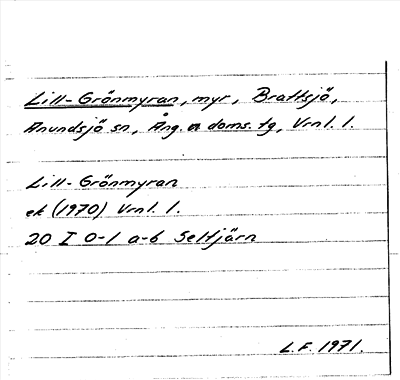 Lill-Grönmyran, myr, Brattsjö,
Anundsjö sn, Ång. n doms. tg, Vrnl. l.
Lill-Grönmyran
ek (1970) Vrnl. l.
20 I 0-1 a-b Seltjärn
L.F. 1971.